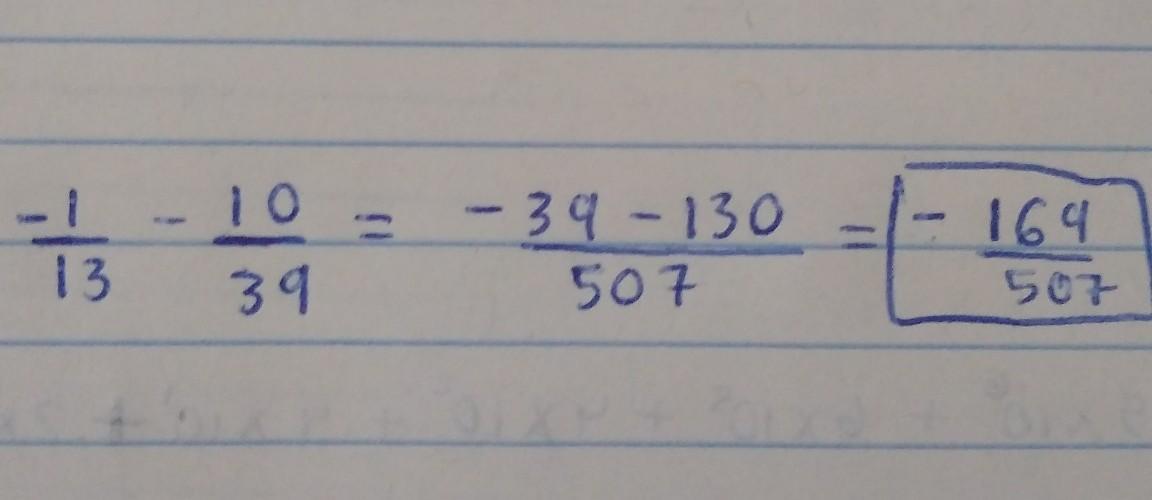 -1/13 - 10/39 = -39-130/507 = - 169/507